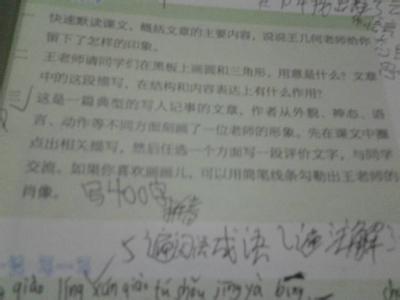 快速默读课文，概括文章的主要内容，说说王几何老师给你
留下了怎样的印象。
王老师请同学们在黑板上画圆和三角形，用意是什么？文章
中的这段描写，在结构和内容表达上有什么作用？
这是一篇典型的写人记事的文章，作者从外貌、神态、语
言、动作等不同方面刻画了一位老师的形象。先在课文中圈
点出相关描写，然后任选一个方面写一段评价文字，与同学
交流。如果你喜欢画画儿，可以用简笔线条勾勒出王老师的
肖像。
写400字
5遍词语成语1遍注解
写一写
qiáo jīng xùn qiáo tú shǒu jīng yà bīng